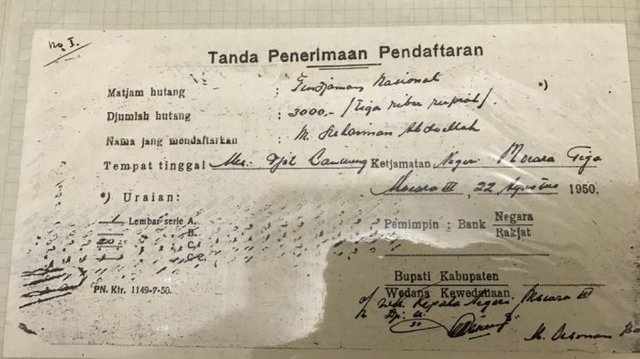 No. I.
Tanda Penerimaan Pendaftaran
Matjam hutang : Pindjaman Nasional *)
Djumlah hutang : 3000,- / Tiga ribu rupiah /
Nama jang mendaftarkan : M. Abdullah
Tempat tinggal Ketjamatan Negeri Moeara Tiga
Moeara III, 22 Agustus 1950.
*) Uraian:
Lembar serie A.
B.
C.
Pemimpin : Bank Negara
Rakjat
Bupati Kabupaten
Wedana Kewedanaan
Kepala Negeri Moeara III
PN. Ktr. 1149-7-50.